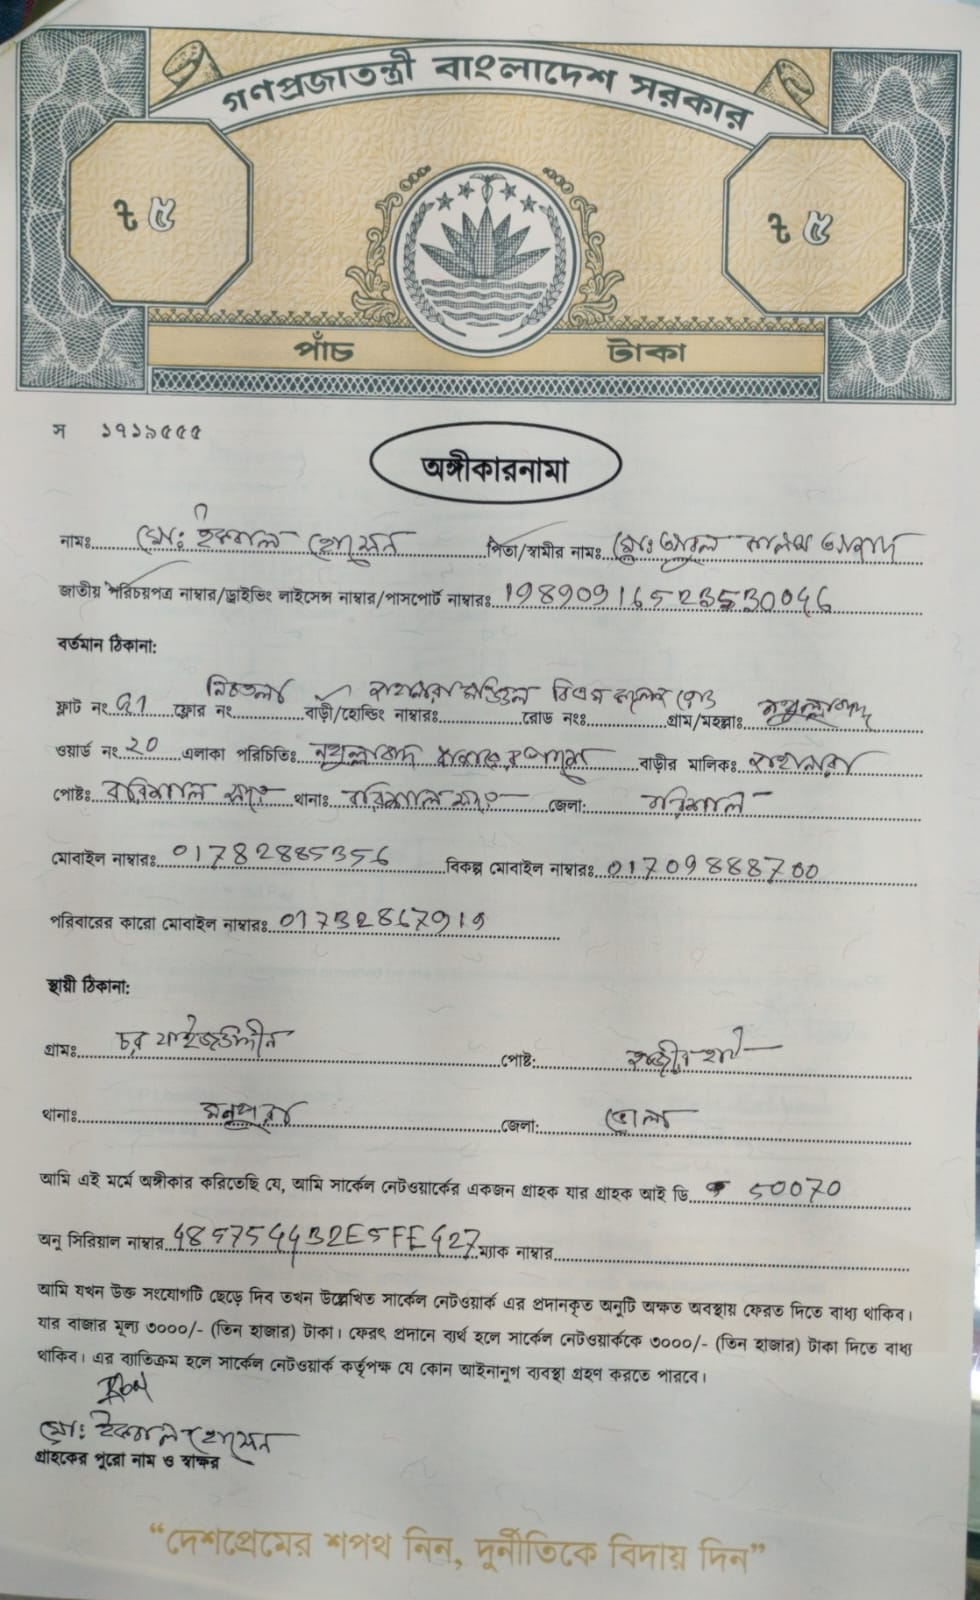 গণপ্রজাতন্ত্রী বাংলাদেশ সরকার
৳ ৫ ৳ ৫
পাঁচ টাকা
স ১৭১৯৫৫৫
অঙ্গীকারনামা
নামঃ মোঃ ইকবাল হোসেন পিতা/স্বামীর নামঃ মোঃ আবুল কালাম আজাদ
জাতীয় পরিচয়পত্র নাম্বার/ড্রাইভিং লাইসেন্স নাম্বার/পাসপোর্ট নাম্বারঃ 19890916523530046
বর্তমান ঠিকানা:
ফ্লাট নং G1 ফ্লোর নং নিচতলা বাড়ী/হোল্ডিং নাম্বারঃ রোড নংঃ গ্রাম/মহল্লাঃ
ওয়ার্ড নং 20 এলাকা পরিচিতিঃ বাড়ীর মালিকঃ
পোষ্টঃ বরিশাল সদর থানাঃ বরিশাল সদর জেলা: বরিশাল
মোবাইল নাম্বারঃ 01782885356 বিকল্প মোবাইল নাম্বারঃ 01709888700
পরিবারের কারো মোবাইল নাম্বারঃ 01732867919
স্থায়ী ঠিকানা:
গ্রামঃ চর ফাইজউদ্দীন পোষ্ট:
থানাঃ মনপুরা জেলা: ভোলা
আমি এই মর্মে অঙ্গীকার করিতেছি যে, আমি সার্কেল নেটওয়ার্কের একজন গ্রাহক যার গ্রাহক আই ডি 50070
অনু সিরিয়াল নাম্বার 48575443B2E5FE427 ম্যাক নাম্বার
আমি যখন উক্ত সংযোগটি ছেড়ে দিব তখন উল্লেখিত সার্কেল নেটওয়ার্ক এর প্রদানকৃত অনুটি অক্ষত অবস্থায় ফেরত দিতে বাধ্য থাকিব।
যার বাজার মূল্য ৩০০০/- (তিন হাজার) টাকা। ফেরৎ প্রদানে ব্যর্থ হলে সার্কেল নেটওয়ার্ককে ৩০০০/- (তিন হাজার) টাকা দিতে বাধ্য
থাকিব। এর ব্যতিক্রম হলে সার্কেল নেটওয়ার্ক কর্তৃপক্ষ যে কোন আইনানুগ ব্যবস্থা গ্রহণ করতে পারবে।
মোঃ ইকবাল হোসেন
গ্রাহকের পুরো নাম ও স্বাক্ষর
“দেশপ্রেমের শপথ নিন, দুর্নীতিকে বিদায় দিন”